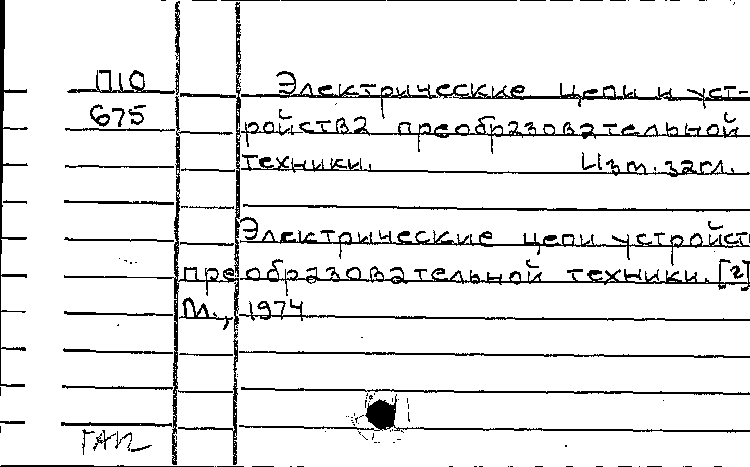 П10 Электрические цепи и уст-
675 ройства преобразовательной
техники. Изм. загл.
Электрические цепи устройст
преобразовательной техники. [2]
М., 1974
ГАП